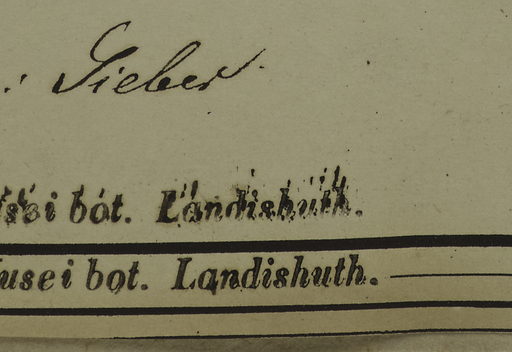 : Sieber
usei bot. Landishuth.
usei bot. Landishuth.